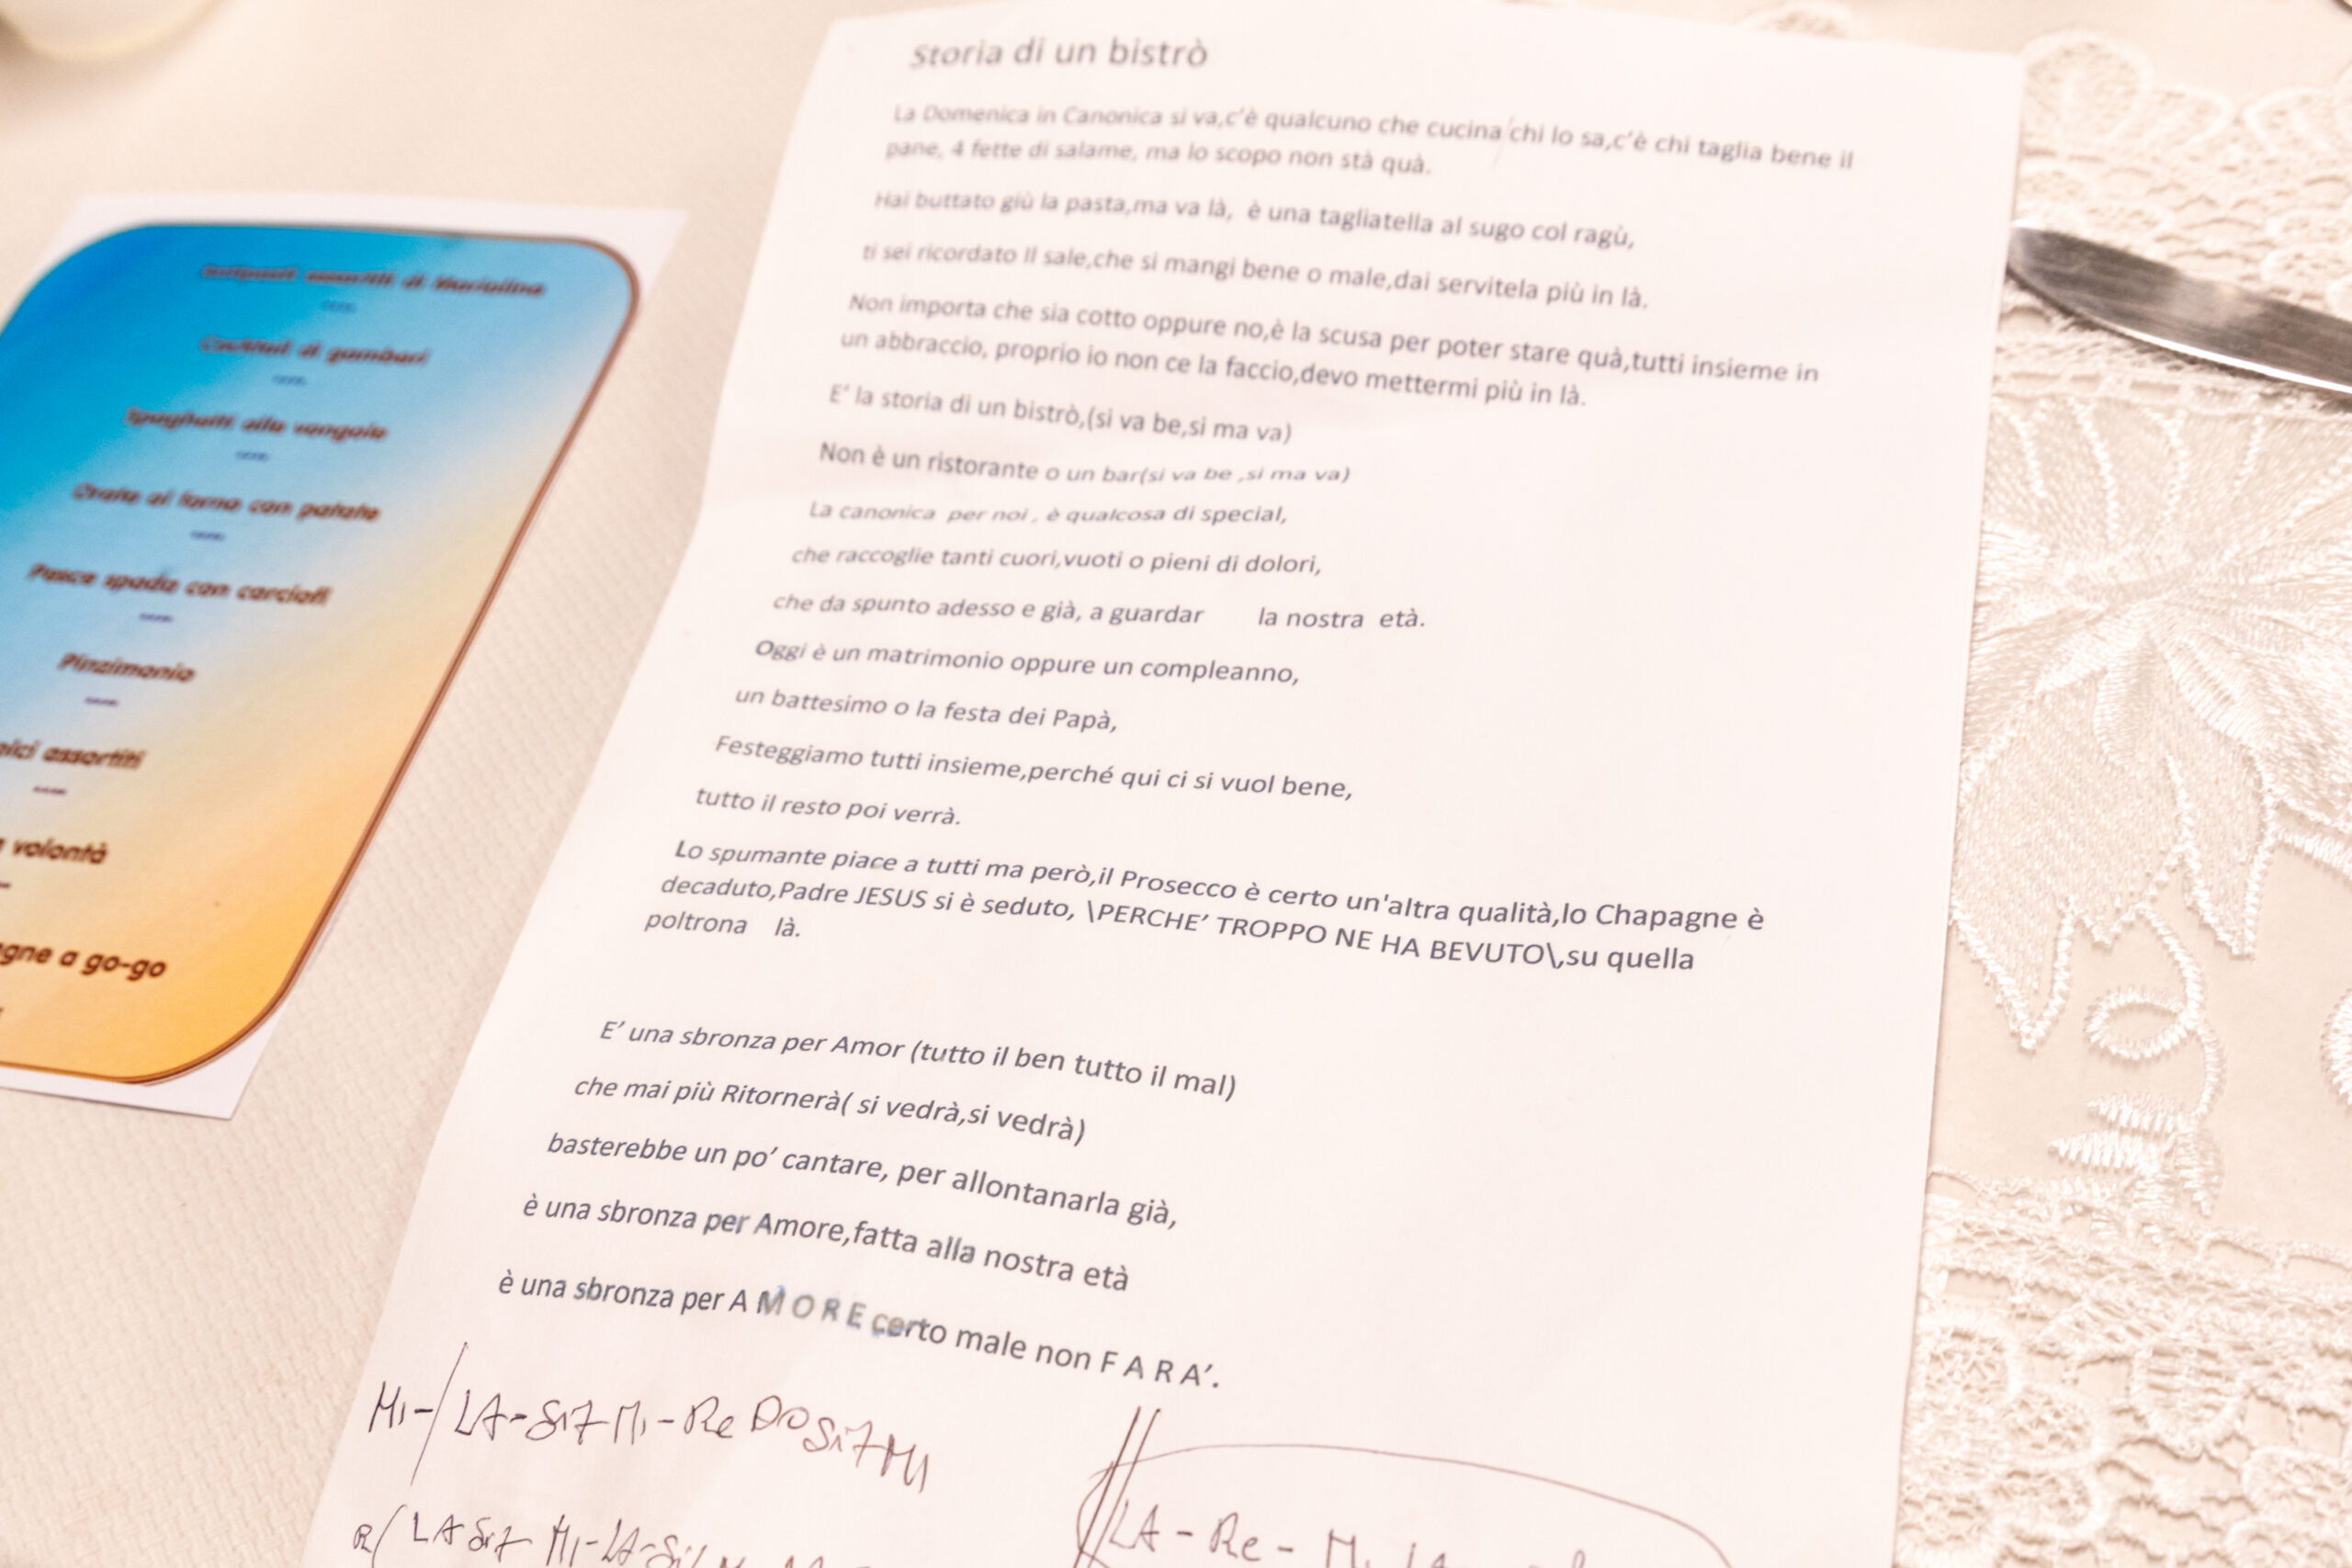 Antipasti assortiti di
Cocktail di gamberi
Spaghetti alle vongole
Orata al forno con patate
Pesce spada con carciofi
Pinzimonio
assortiti
volontà
a go-go
Storia di un bistrò
La Domenica in Canonica si va,c’è qualcuno che cucina chi lo sa,c’è chi taglia bene il
pane, 4 fette di salame, ma lo scopo non stà quà.
Hai buttato giù la pasta,ma va là, è una tagliatella al sugo col ragù,
ti sei ricordato Il sale,che si mangi bene o male,dai servitela più in là.
Non importa che sia cotto oppure no,è la scusa per poter stare quà,tutti insieme in
un abbraccio, proprio io non ce la faccio,devo mettermi più in là.
E’ la storia di un bistrò,(si va be,si ma va)
Non è un ristorante o un bar(si va be ,si ma va)
La canonica per noi , è qualcosa di special,
che raccoglie tanti cuori,vuoti o pieni di dolori,
che da spunto adesso e già, a guardar la nostra età.
Oggi è un matrimonio oppure un compleanno,
un battesimo o la festa dei Papà,
Festeggiamo tutti insieme,perché qui ci si vuol bene,
tutto il resto poi verrà.
Lo spumante piace a tutti ma però,il Prosecco è certo un'altra qualità,lo Chapagne è
decaduto,Padre JESUS si è seduto, \PERCHE’ TROPPO NE HA BEVUTO\,su quella
poltrona là.
E’ una sbronza per Amor (tutto il ben tutto il mal)
che mai più Ritornerà( si vedrà,si vedrà)
basterebbe un po’ cantare, per allontanarla già,
è una sbronza per Amore,fatta alla nostra età
è una sbronza per A M O R E certo male non F A R A’.
MI-/LA-SI7 MI-Re DO SI7 MI
R/LA SI7 MI-LA-
//LA-Re-MI